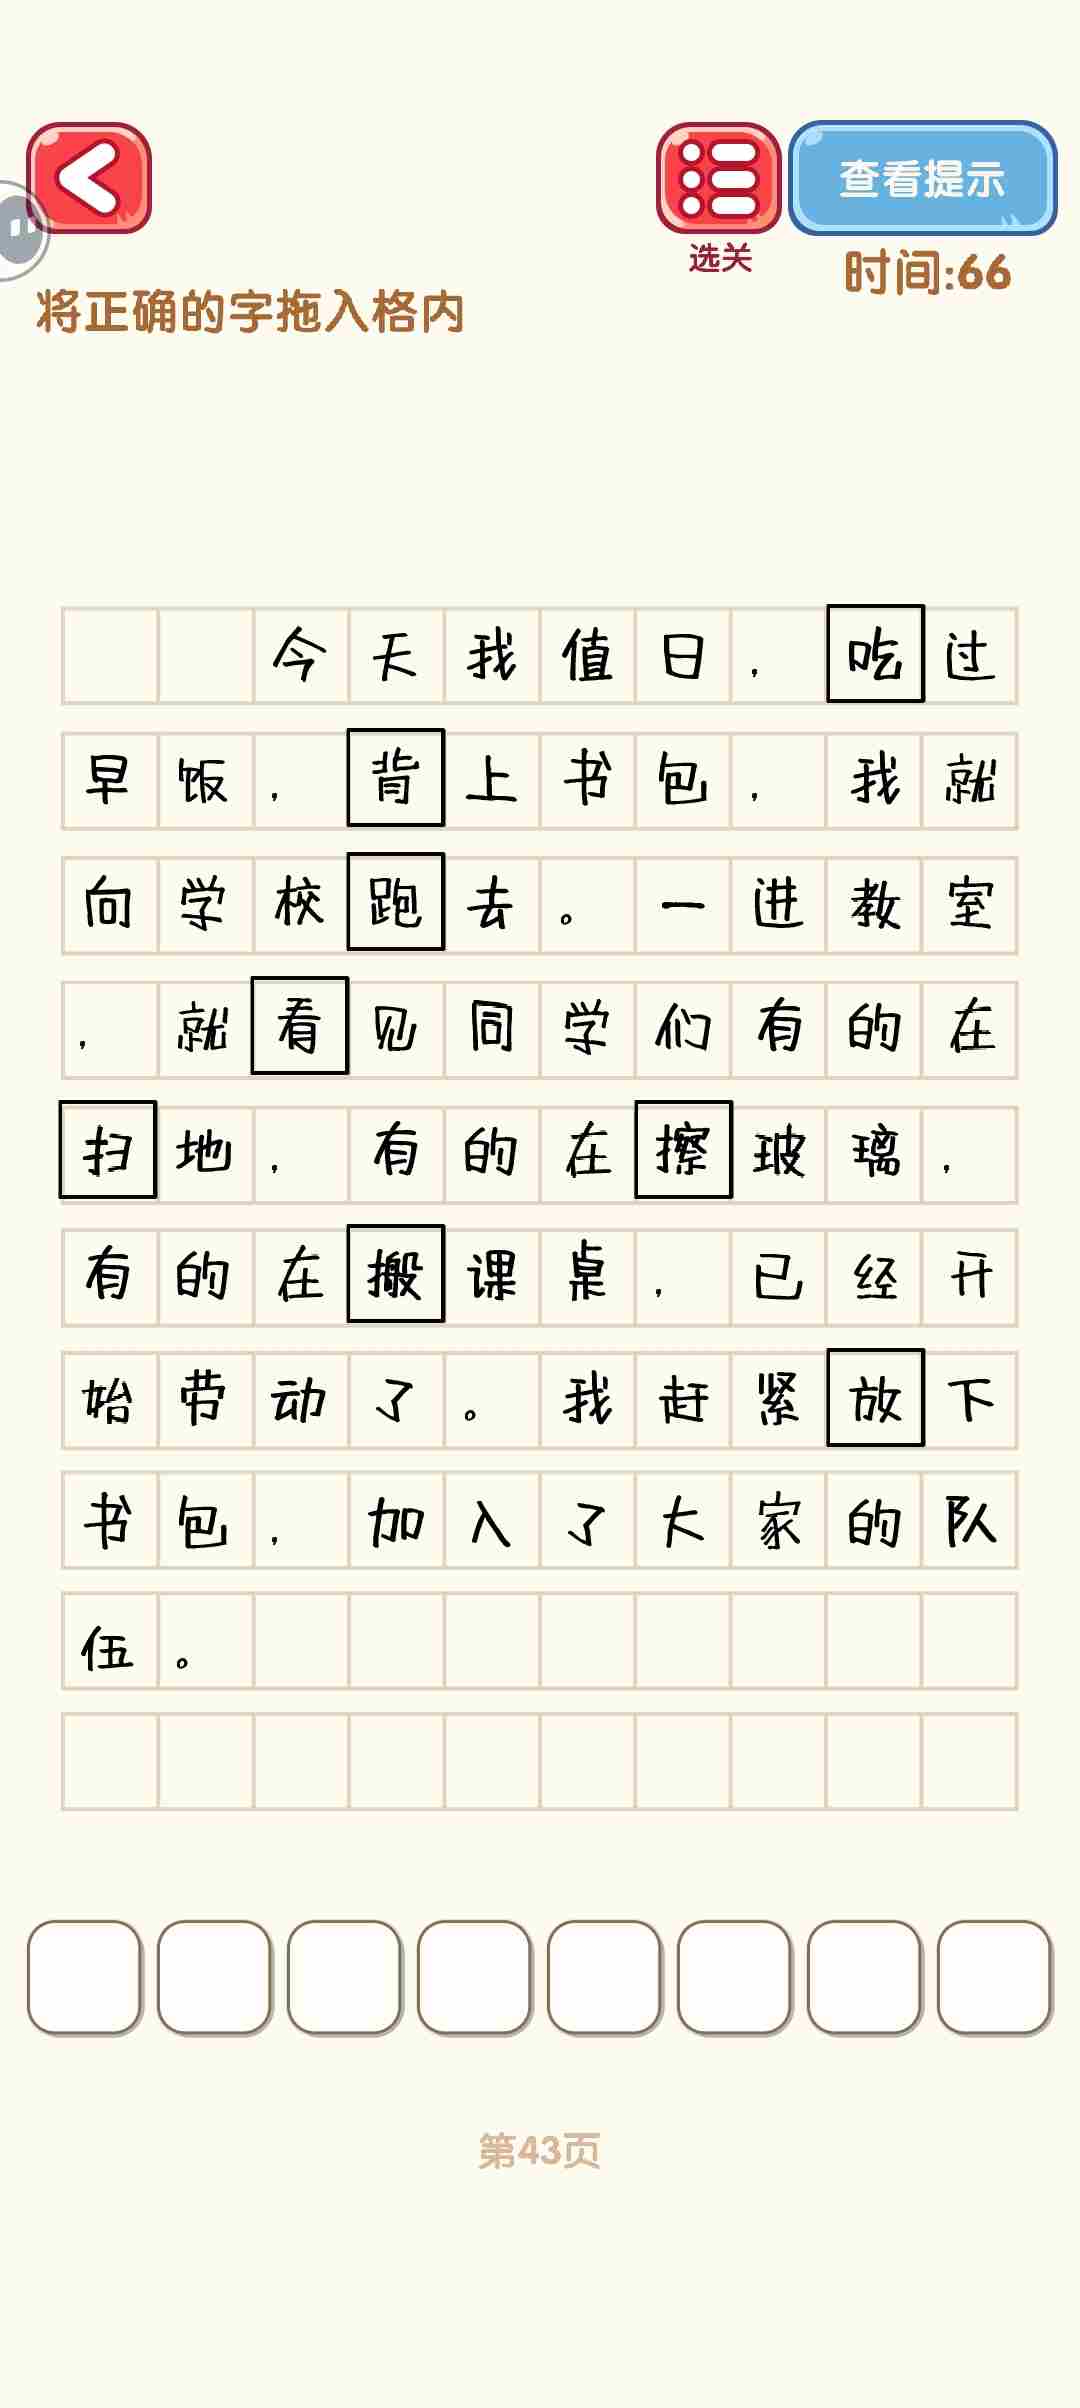 查看提示
选关
时间:66
将正确的字拖入格内
今天我值日，吃过
早饭，背上书包，我就
向学校跑去。一进教室
，就看见同学们有的在
扫地，有的在擦玻璃，
有的在搬课桌，已经开
始劳动了。我赶紧放下
书包，加入了大家的队
伍。
第43页